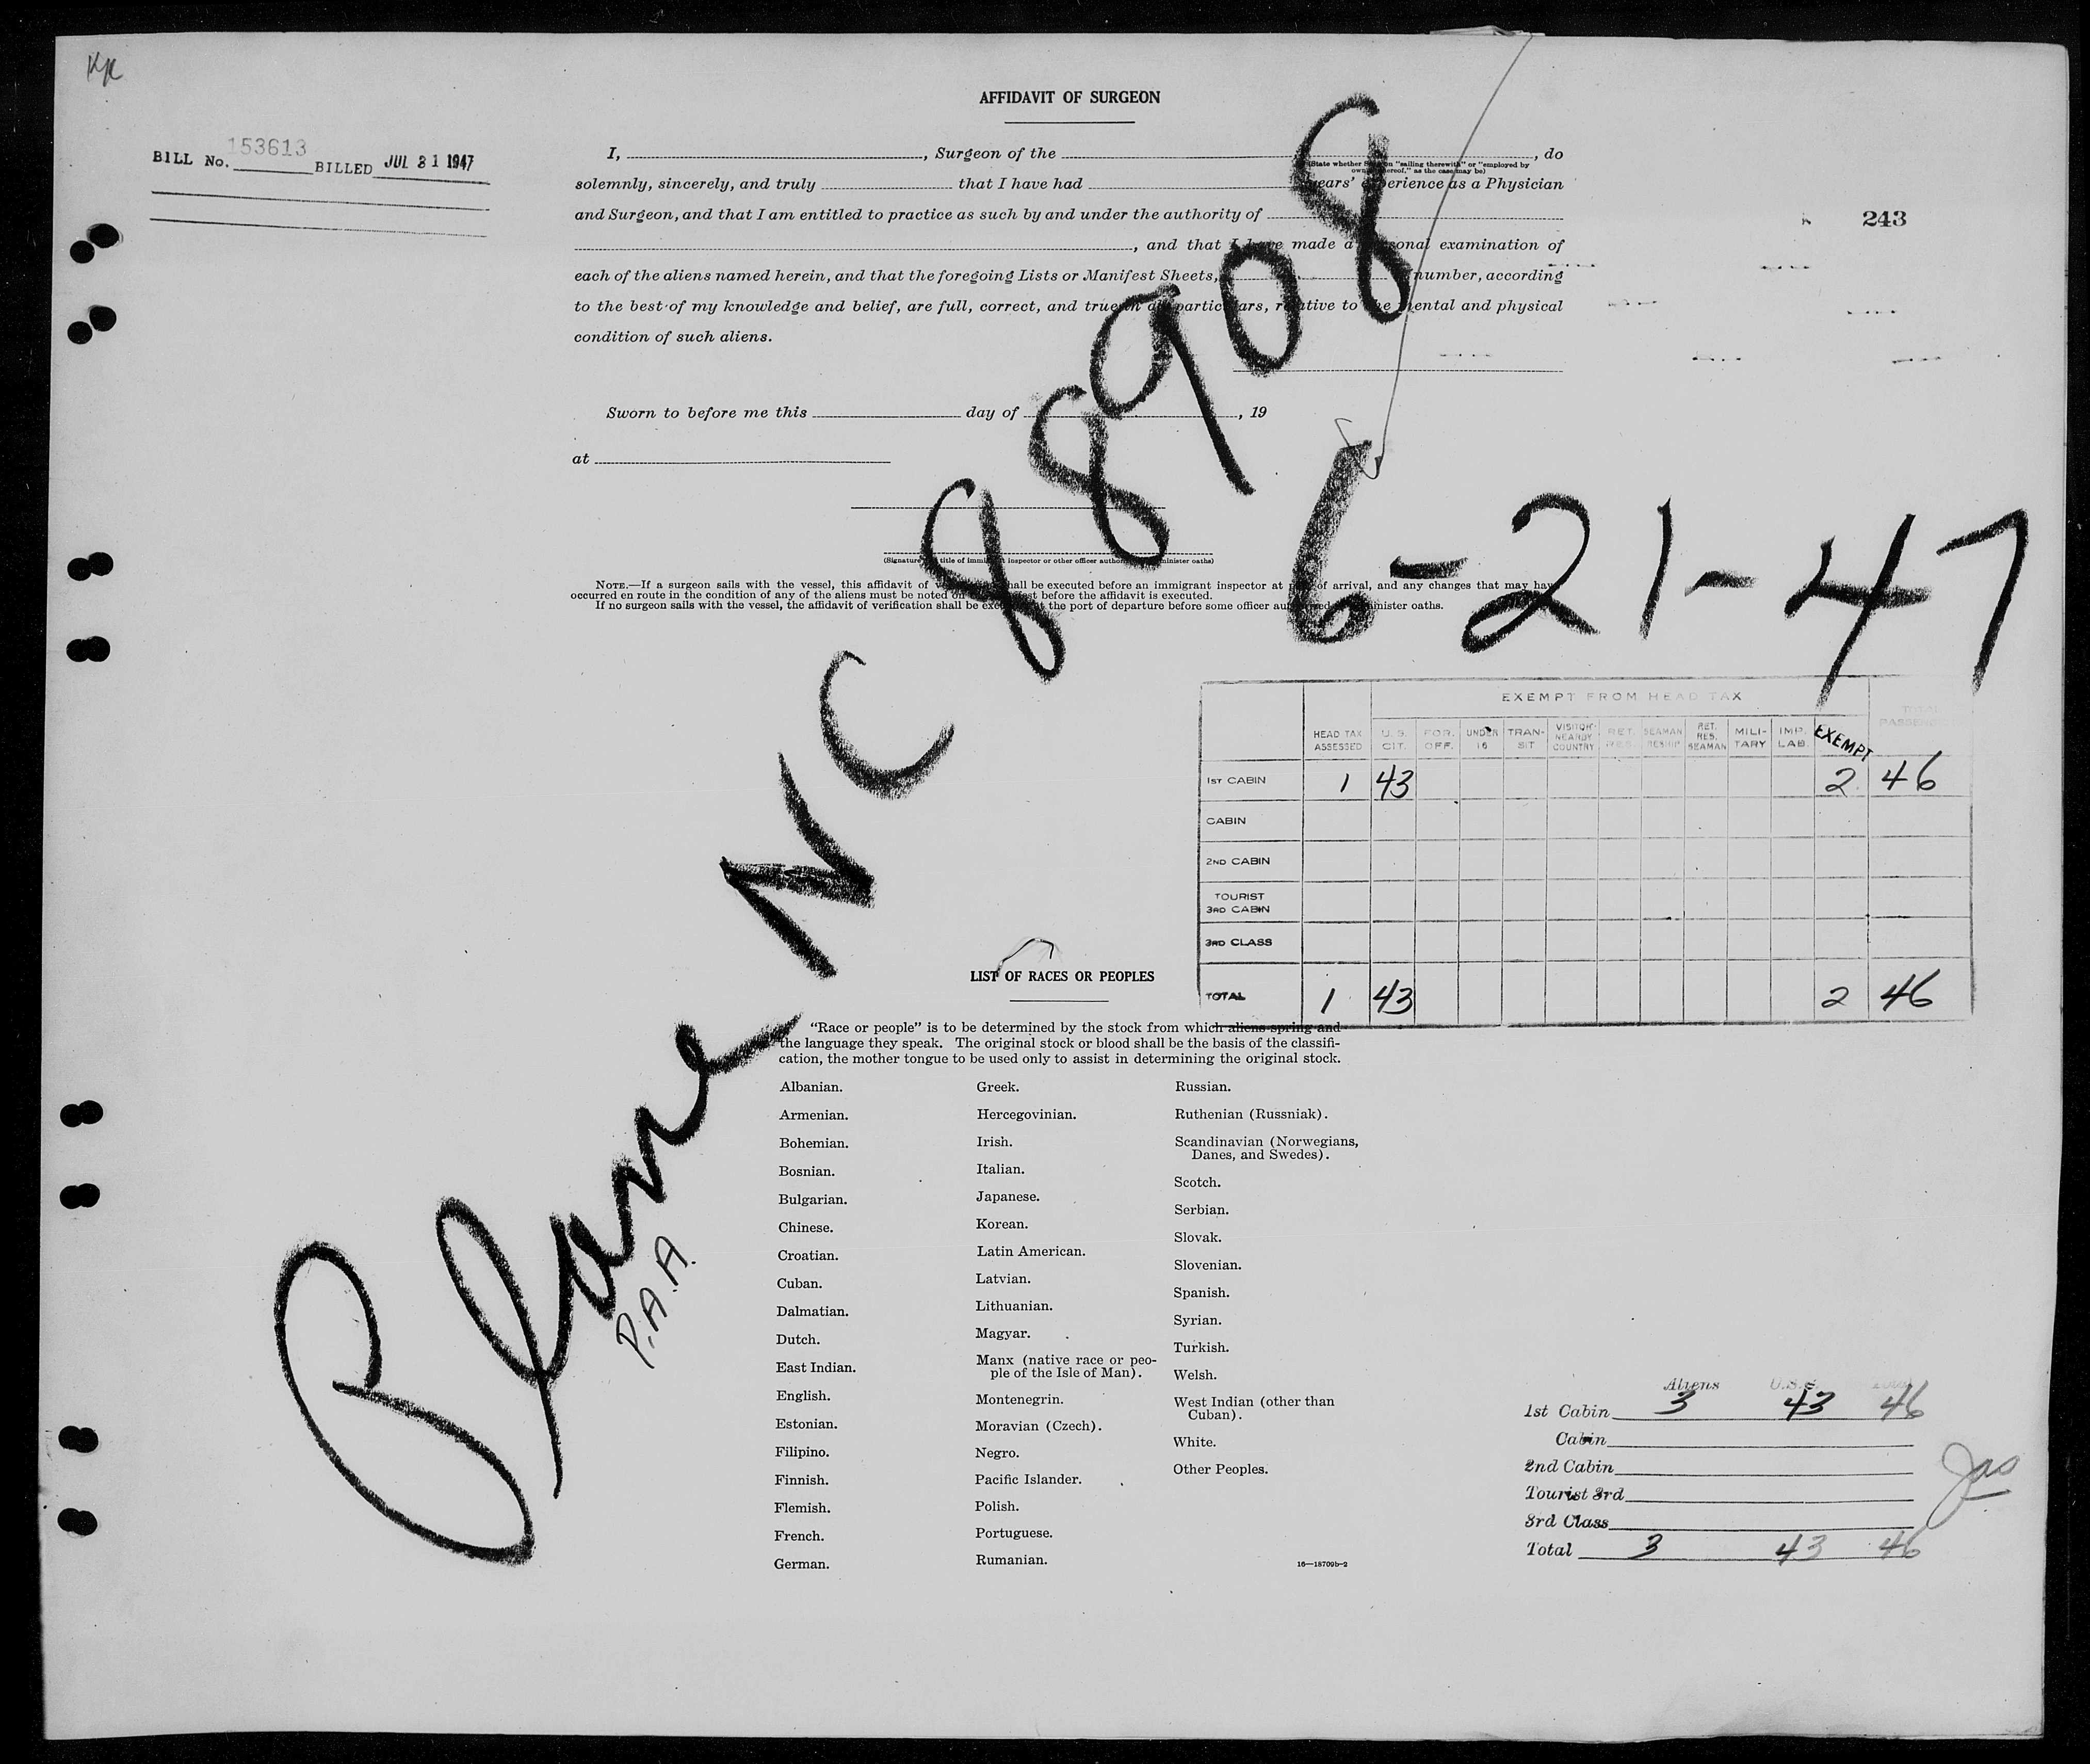 KR
AFFIDAVIT OF SURGEON
BILL No. 153613 BILLED JUL 31 1947
I, , Surgeon of the , do
(State whether Surgeon "sailing therewith" or "employed by
owners thereof," as the case may be)
solemnly, sincerely, and truly that I have had years' experience as a Physician
and Surgeon, and that I am entitled to practice as such by and under the authority of
243
, and that I have made a personal examination of
each of the aliens named herein, and that the foregoing Lists or Manifest Sheets, number, according
to the best of my knowledge and belief, are full, correct, and true in all particulars, relative to the mental and physical
condition of such aliens.
Sworn to before me this day of , 19
at
(Signature and title of immigrant inspector or other officer authorized to administer oaths)
NOTE.—If a surgeon sails with the vessel, this affidavit of shall be executed before an immigrant inspector at port of arrival, and any changes that may have
occurred en route in the condition of any of the aliens must be noted on manifest before the affidavit is executed.
If no surgeon sails with the vessel, the affidavit of verification shall be executed at the port of departure before some officer authorized to administer oaths.
Plane NC 88908
6-21-47
P.A.A.
EXEMPT FROM HEAD TAX
HEAD TAX ASSESSED U.S. CIT. FOR. OFF. UNDER 16 TRAN-SIT VISITOR-NEARBY COUNTRY RET. RES. SEAMAN RESHIP RET. RES. SEAMAN MILI-TARY IMP. LAB. EXEMPT TOTAL
1ST CABIN 1 43 2 46
CABIN
2ND CABIN
TOURIST
3RD CABIN
3RD CLASS
TOTAL 1 43 2 46
LIST OF RACES OR PEOPLES
"Race or people" is to be determined by the stock from which aliens spring and
the language they speak. The original stock or blood shall be the basis of the classifi-
cation, the mother tongue to be used only to assist in determining the original stock.
Albanian.
Armenian.
Bohemian.
Bosnian.
Bulgarian.
Chinese.
Croatian.
Cuban.
Dalmatian.
Dutch.
East Indian.
English.
Estonian.
Filipino.
Finnish.
Flemish.
French.
German.
Greek.
Hercegovinian.
Irish.
Italian.
Japanese.
Korean.
Latin American.
Latvian.
Lithuanian.
Magyar.
Manx (native race or peo-
ple of the Isle of Man).
Montenegrin.
Moravian (Czech).
Negro.
Pacific Islander.
Polish.
Portuguese.
Rumanian.
Russian.
Ruthenian (Russniak).
Scandinavian (Norwegians,
Danes, and Swedes).
Scotch.
Serbian.
Slovak.
Slovenian.
Spanish.
Syrian.
Turkish.
Welsh.
West Indian (other than
Cuban).
White.
Other Peoples.
16—18709b-2
Aliens U.S.C. Total
1st Cabin 3 43 46
Cabin
2nd Cabin
Tourist 3rd
3rd Class
Total 3 43 46
Jas